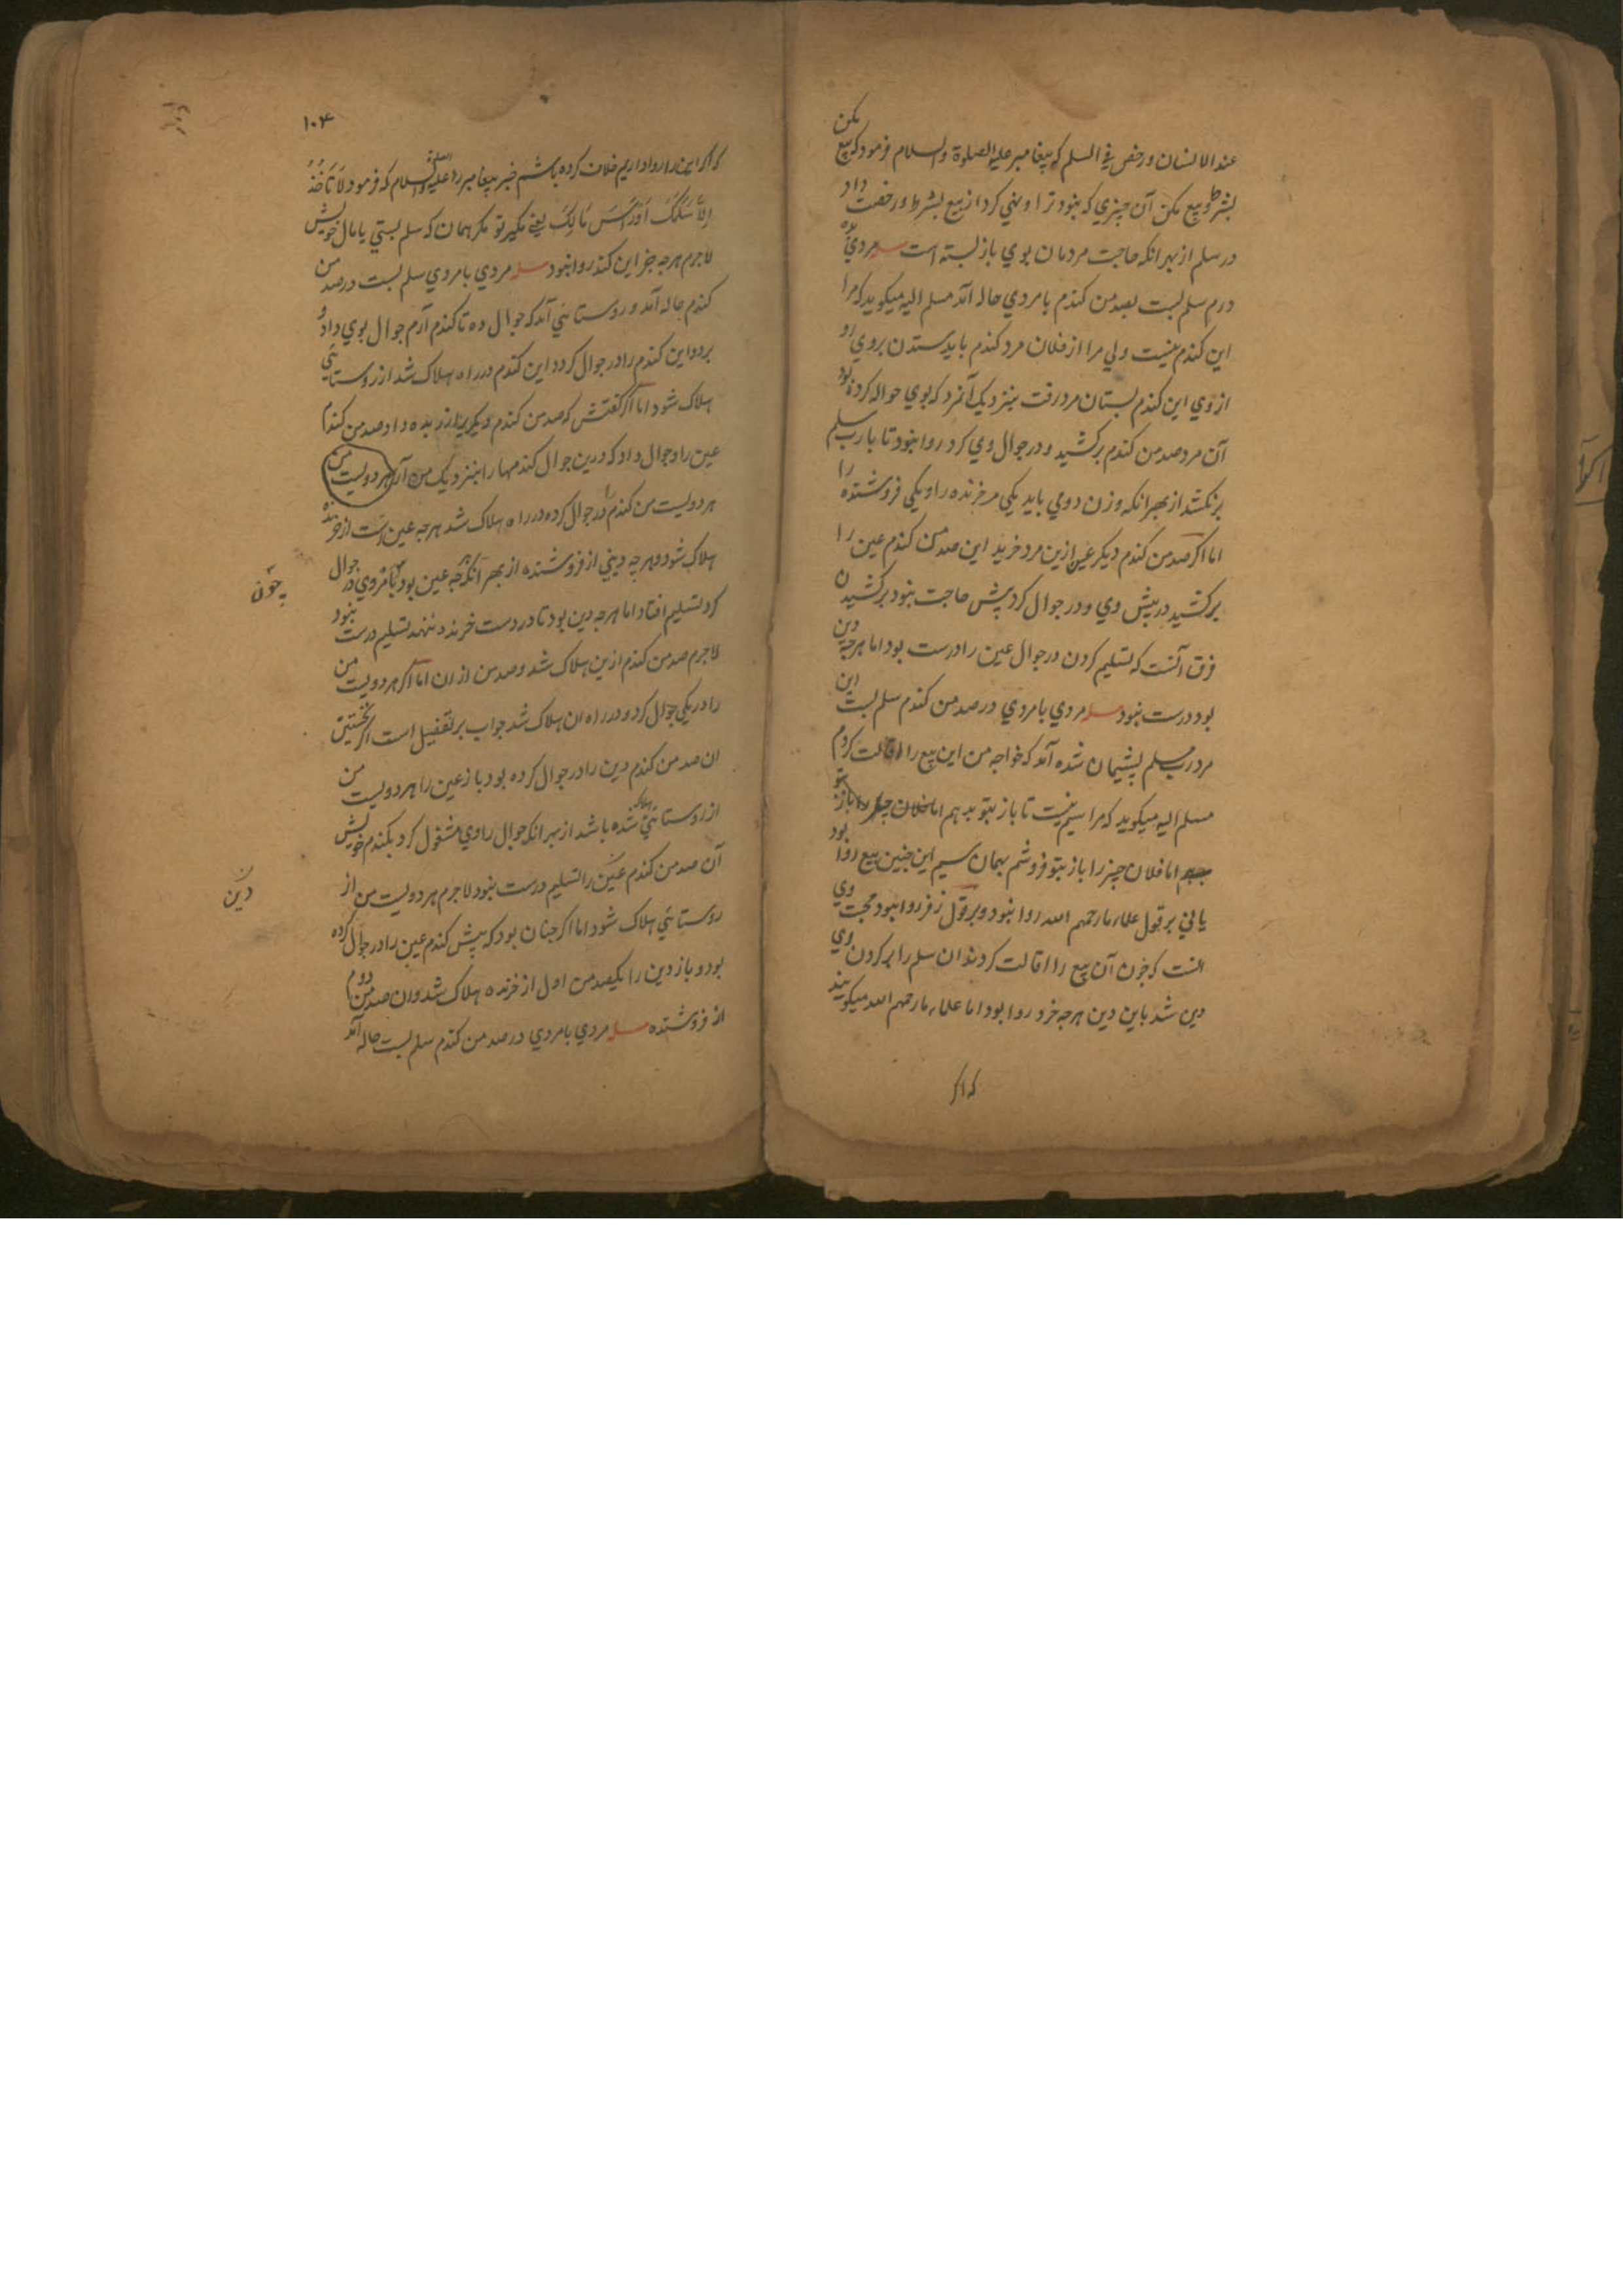 عند الانسان ورخص في السلم که پیغامبر علیه الصلوة والسلام فرمود که بیع مکن
بشرط و بیع مکن آن چیزي که نبود ترا و نهي کرد از بیع بشرط و رخصت داد
در سلم از بهر انکه حاجت مردمان بوي باز بسته است مسله مردي ده
درم سلم بست بصد من کندم با مردي حاله آمد مسلم الیه میکوید که مرا
این کندم نیست ولي مرا از فلان مرد کندم باید ستدن بروي رو
از وي این کندم بستان مرد رفت بنزدیک آنمرد که بوي حواله کرده بود
آن مرد صد من کندم برکشید و در جوال وي کرد روا نبود تا بار رب سلم
برنکشد از بهر انکه وزن دومي باید یکي مر خرنده را و یکي فروشنده را
اما اکر صد من کندم دیکر عین ازین مرد خرید این صد من کندم عین را
برکشید در پیش وي و در جوال کرد پش حاجت نبود برکشیدن
فرق آنست که تسلیم کردن در جوال عین را درست بود اما هرجه دین
بود درست نبود مسله مردي با مردي در صد من کندم سلم بست این
مرد رب سلم پشیمان شده آمد که خواجه من این بیع را اقالت کردم
مسلم الیه میکوید که مرا سیم نیست تا باز بتو بدهم اما فلان چیز را باز بتو
اما فلان چیز را باز بتو فروشم بهمان سیم این چنین بیع روا بود
یا ني بر قول علماء ما رحمهم الله روا نبود و بر قول زفر روا نبود حجت وي
انست که چون آن بیع را اقالت کردند ان سلم را بر کردن وي
دین شد باین دین هرجه خرد روا بود اما علماء ما رحمهم الله میکویند
که اکر
۱۰۴
که اکر این را روا داریم خلاف کرده باشم خبر پیغامبر را علیه الصلوة والسلام که فرمود لا تأخذ
الا سلمک او رأس مالک یعني مکیر تو مکر همان که سلم بستي یا مال خویش
لاجرم هرجه جز این کند روا نبود مسله مردي با مردي سلم بست در صد من
کندم حاله آمد و روستائي آمد که جوال ده تا کندم آرم جوال بوي داد و
برد و این کندم را در جوال کرد این کندم در راه هلاک شد از روستائي
هلاک شود اما اکر کفتش که صد من کندم دیکر بده داد صد من کندم
عین را و جوال داد که درین جوال کندمها را بنزدیک من آر هر دویست من
هر دویست من کندم را در جوال کرده در راه هلاک شد هرجه عین است از خرنده
هلاک شود و هرچه دیني از فروشنده از بهر انکه هرجه عین بود تا مروي در جوال
کرد تسلیم افتاد اما هرجه دین بود تا در دست خرنده ننهد تسلیم درست نبود
لاجرم صد من کندم ازین هلاک شد و صد من از ان اما اکر هر دویست من
را در یکي جوال کرد و در راه ان هلاک شد جواب بر تفصیل است اکر نخستین
ان صد من کندم دین را در جوال کرده بود باز عین را هر دویست من
از روستائي هلاک شده باشد از بهر انکه جوال را وي مشغول کرد بکندم خویش
آن صد من کندم عین را تسلیم درست نبود لاجرم هر دویست من از
روستائي هلاک شود اما اکر چنان بود که پیش کندم عین را در جوال کرده
بود و باز دین را یکصد من اول از خرنده هلاک شد و ان صد من دوم
از فروشنده مسله مردي با مردي در صد من کندم سلم بست حاله آمد
چون
دین